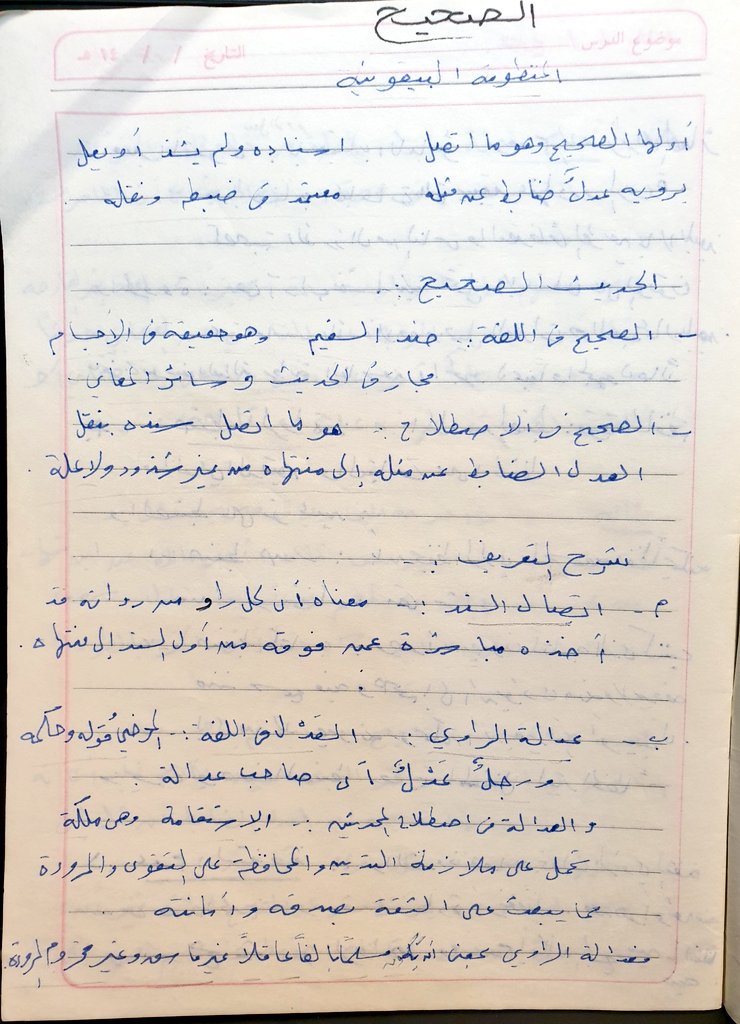 الصحيح
موضوع الدرس / التاريخ / / ١٤ هـ
المنظومة البيقونية
أولها الصحيح وهو ما اتصل اسناده ولم يشذ أو يعل
يرويه عدلٌ ضابط عن مثله معتمد في ضبطه ونقله
الحديث الصحيح :-
- الصحيح في اللغة :- ضد السقيم وهو حقيقة في الأجسام
مجاز في الحديث وسائر المعاني .
- الصحيح في الاصطلاح :- هو ما اتصل سنده بنقل
العدل الضابط عن مثله إلى منتهاه من غير شذوذ ولا علة .
شرح التعريف :-
م - اتصال السند :- معناه أن كل راو من رواته قد
أخذه مباشرة عمن فوقه من أول السند إلى منتهاه .
ب - عدالة الراوي : العَدْل في اللغة :- المرضي قوله وحكمه
ورجلٌ عَدْلٌ أي صاحب عدالة .
والعدالة في اصطلاح المحدثين :- الاستقامة وهي ملكة
تحمل على ملازمة التدين والمحافظة على التقوى والمروءة
مما يبعث على الثقة بصدقه وأمانته
فعدالة الراوي بمعنى أن يكون مسلمًا بالغاً عاقلاً غير فاسق وغير مخروم المروءة.